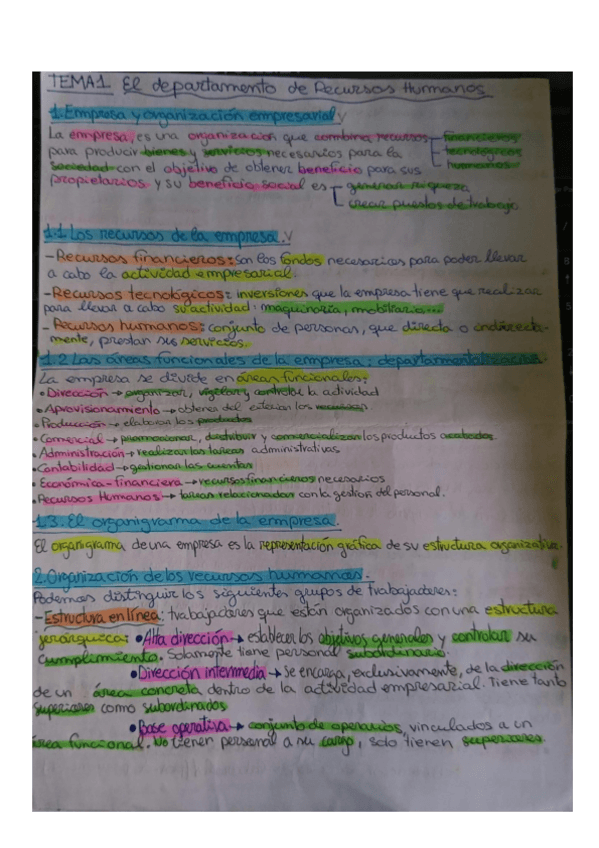 TEMA1. El departamento de Recursos Humanos
1. Empresa y organización empresarial
La empresa, es una organización que combina recursos financieros
para producir bienes y servicios necesarios para la tecnológicos
sociedad con el objetivo de obtener beneficio para sus humanos
propietarios y su beneficio social es generar riqueza
crear puestos de trabajo
1.1 Los recursos de la empresa.
- Recursos financieros: son los fondos necesarios para poder llevar
a cabo la actividad empresarial.
- Recursos tecnológicos: inversiones que la empresa tiene que realizar
para llevar a cabo su actividad: maquinaria, mobiliario...
- Recursos humanos: conjunto de personas, que directa o indirecta-
mente, prestan sus servicios.
1.2 Las áreas funcionales de la empresa: departamentalización.
La empresa se divide en áreas funcionales:
• Dirección → organizar, vigilar y controlar la actividad
• Aprovisionamiento → obtener del exterior los recursos
• Producción → elaborar los productos
• Comercial → promocionar, distribuir y comercializar los productos acabados
• Administración → realizar las tareas administrativas.
• Contabilidad → gestionar las cuentas
• Económica-financiera → recursos financieros necesarios
• Recursos Humanos → tareas relacionadas con la gestión del personal.
1.3. El organigrama de la empresa.
El organigrama de una empresa es la representación gráfica de su estructura organizativa.
2. Organización de los recursos humanos.
Podemos distinguir los siguientes grupos de trabajadores:
- Estructura en línea: trabajadores que están organizados con una estructura
jerárquica: • Alta dirección → establecer los objetivos generales y controlar su
cumplimiento. Solamente tiene personal subordinario.
• Dirección intermedia → Se encarga, exclusivamente, de la dirección
de un área concreta dentro de la actividad empresarial. Tiene tanto
superiores como subordinados
• Base operativa → conjunto de operarios, vinculados a un
área funcional. No tienen personal a su cargo, solo tienen superiores.